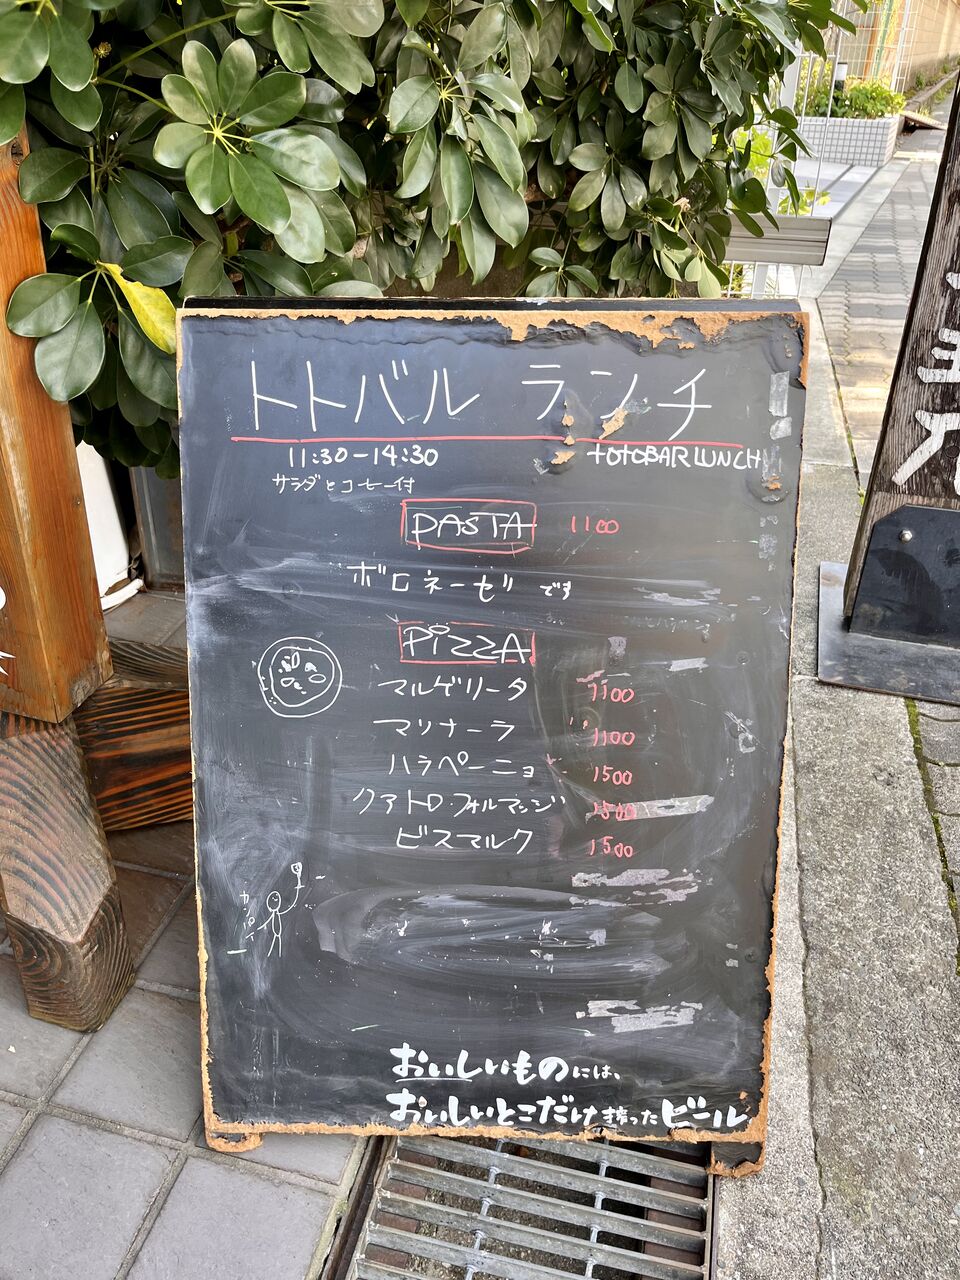 トトバル ランチ
11:30-14:30
totoBAR LUNCH
サラダとコーヒー付
PASTA 1100
ボロネーゼ です
PiZZA
マルゲリータ 1100
マリナーラ 1100
ハラペーニョ 1500
クアトロ・フォルマッジ 1500
ビスマルク 1500
カンパイ
おいしいものには、
おいしいとこだけ搾ったビール